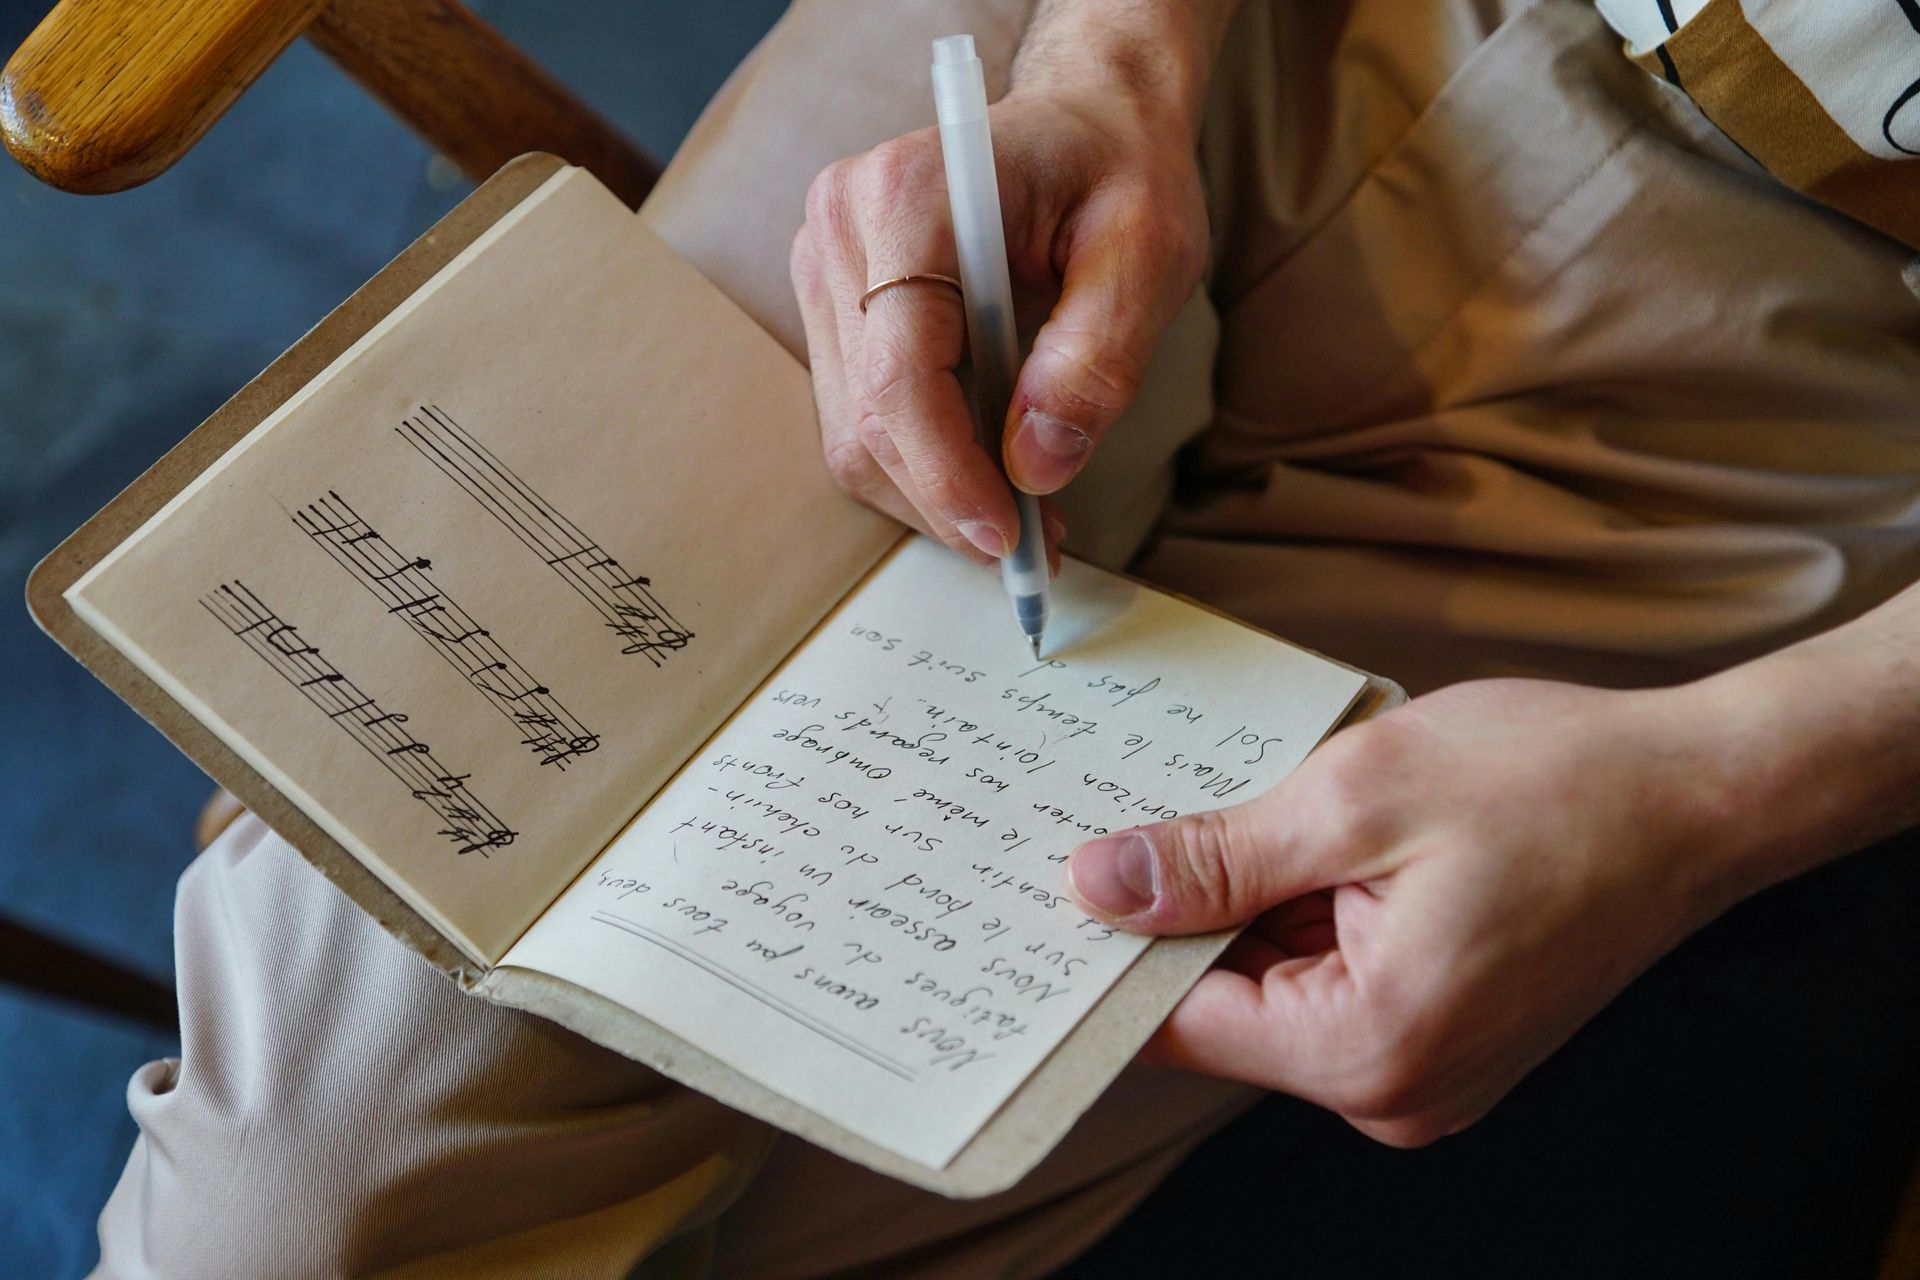 Nous avons pu tous deux,
fatigués du voyage
Nous asseoir un instant
sur le bord du chemin-
Et sentir sur nos fronts
le même ombrage
nos regards vers
orizon lointain.
Mais le temps suit son
Sol ne pas d